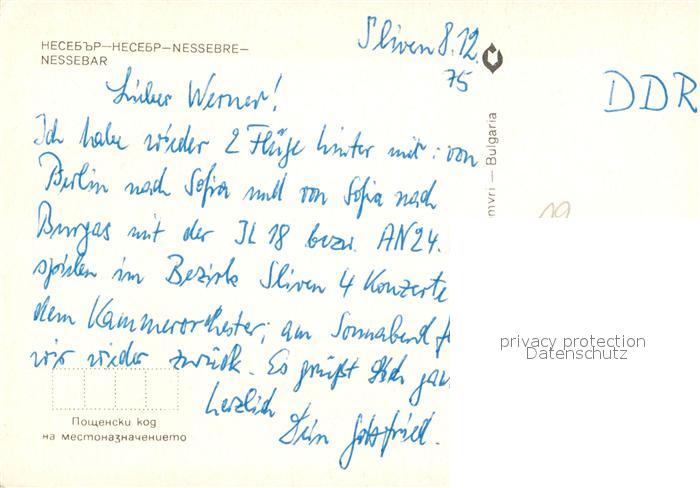 НЕСЕБЪР—НЕСЕБР—NESSEBRE—
NESSEBAR
Sliven 8.12.
75
Lieber Werner!
Ich habe wieder 2 Flüge hinter mir: von
Berlin nach Sofia und von Sofia nach
Burgas mit der IL 18 bezw. AN24.
spielen im Bezirk Sliven 4 Konzerte
dem Kammerorchester, am Sonnabend f
wir wieder zurück. Es grüßt Dich gan
herzlich
Dein Gottfried.
Пощенски код
на местоназначението
— Bulgaria
DDR
19
privacy protection
Datenschutz